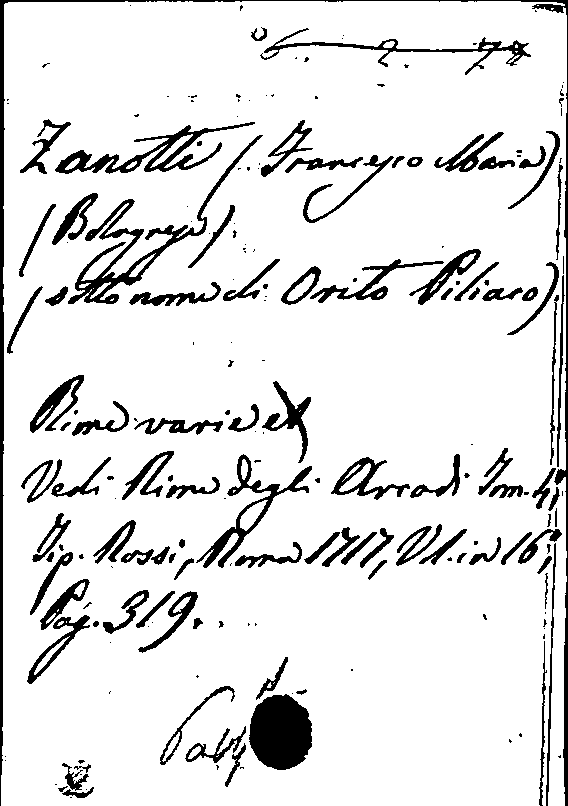 6. 2. 78
Zanotti (Francesco Maria)
(Bolognese).
(sotto nome di Orito Piliaco)
Rime varie
Vedi Rime degli Arcadi Tom. 4°,
Tip. Rossi, Roma 1717, Vol. in 16°,
Pag. 319.